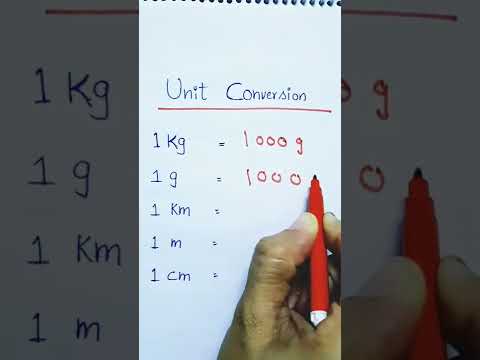 Unit Conversion
1 Kg = 1000 g
1 g = 1000
1 Km =
1 m =
1 cm =